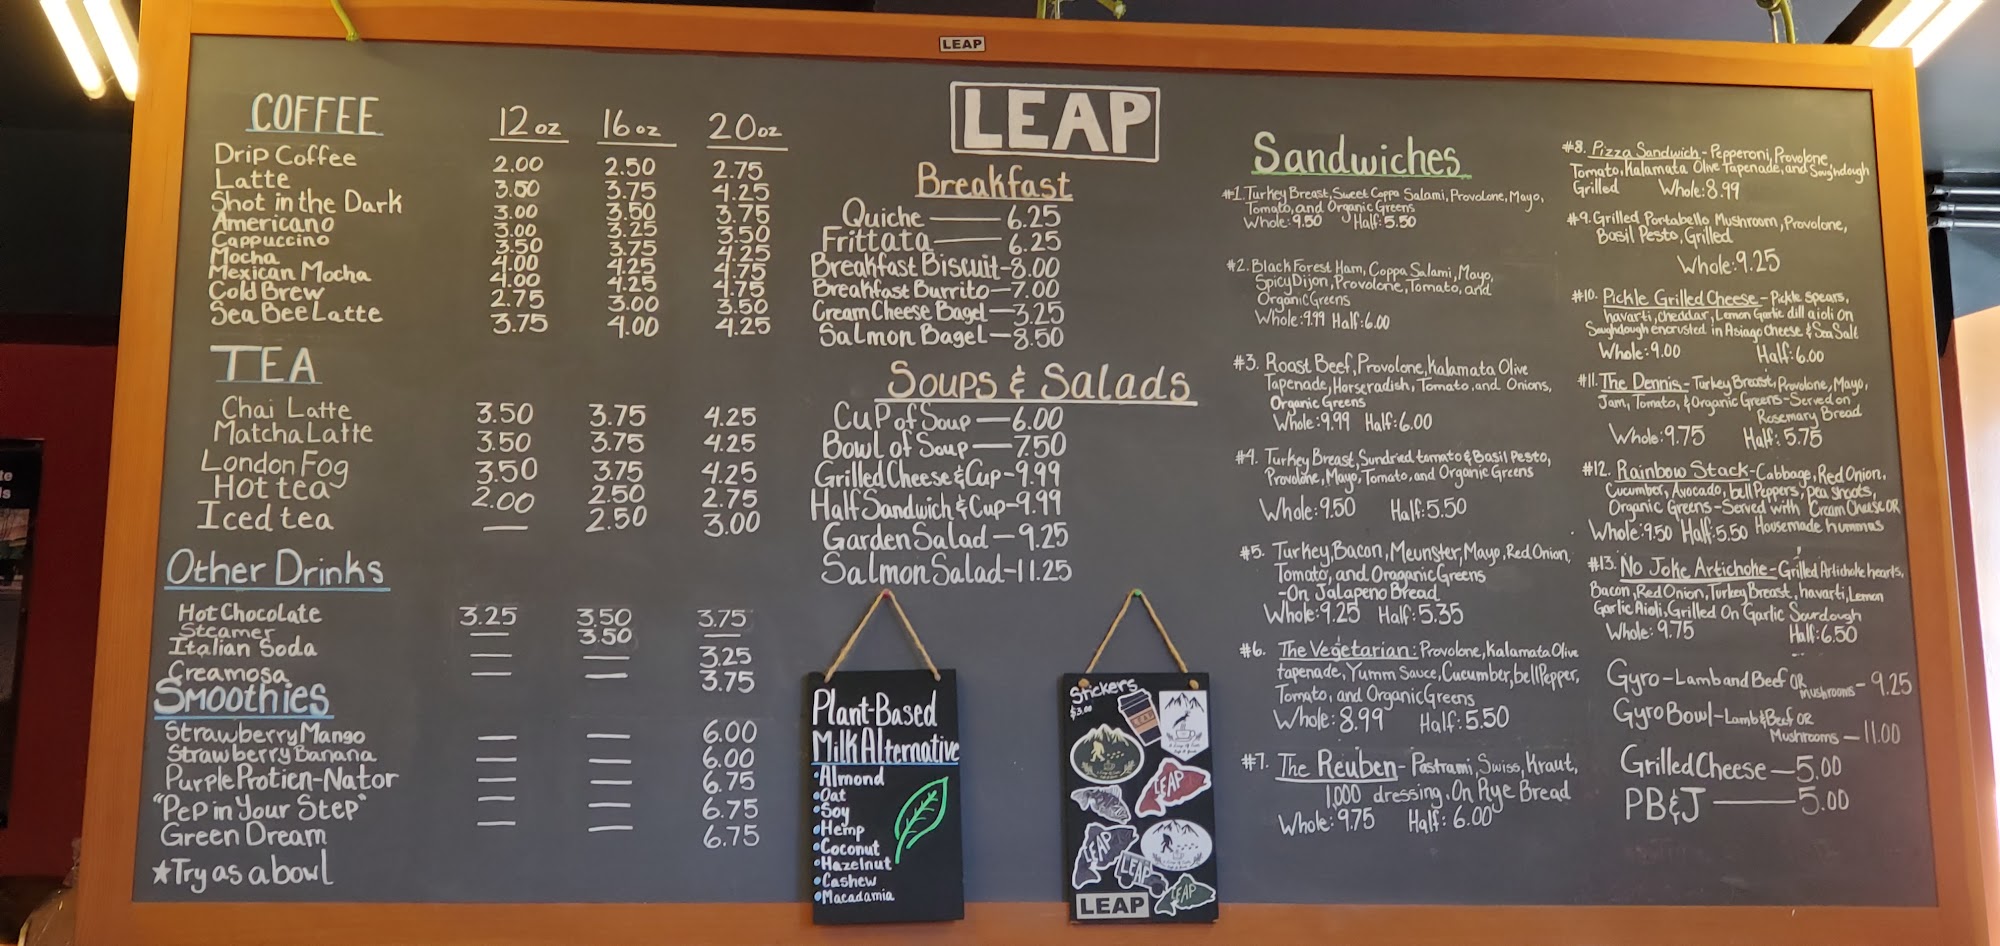 LEAP
LEAP
COFFEE 12oz 16oz 20oz
Drip Coffee 2.00 2.50 2.75
Latte 3.50 3.75 4.25
Shot in the Dark 3.00 3.50 3.75
Americano 3.00 3.25 3.50
Cappuccino 3.50 3.75 4.25
Mocha 4.00 4.25 4.75
Mexican Mocha 4.00 4.25 4.75
Cold Brew 2.75 3.00 3.50
Sea Bee Latte 3.75 4.00 4.25
TEA
Chai Latte 3.50 3.75 4.25
Matcha Latte 3.50 3.75 4.25
London Fog 3.50 3.75 4.25
Hot tea 2.00 2.50 2.75
Iced tea — 2.50 3.00
Other Drinks
Hot Chocolate 3.25 3.50 3.75
Steamer — 3.50 —
Italian Soda — — 3.25
Creamosa — — 3.75
Smoothies
Strawberry Mango — — 6.00
Strawberry Banana — — 6.00
Purple Protien-Nator — — 6.75
"Pep in Your Step" — — 6.75
Green Dream — — 6.75
★Try as a bowl
Breakfast
Quiche — 6.25
Frittata — 6.25
Breakfast Biscuit-8.00
Breakfast Burrito—7.00
Cream Cheese Bagel—3.25
Salmon Bagel—8.50
Soups & Salads
Cup of Soup—6.00
Bowl of Soup—7.50
Grilled Cheese & Cup-9.99
Half Sandwich & Cup-9.99
Garden Salad—9.25
Salmon Salad-11.25
Plant-Based
Milk Alternative
•Almond
•Oat
•Soy
•Hemp
•Coconut
•Hazelnut
•Cashew
•Macadamia
Stickers
$3.00
LEAP
LEAP
LEAP
LEAP
LEAP
Sandwiches
#1. Turkey Breast, Sweet Coppa Salami, Provolone, Mayo,
Tomato, and Organic Greens
Whole: 9.50 Half: 5.50
#2. Black Forest Ham, Coppa Salami, Mayo,
Spicy Dijon, Provolone, Tomato, and
Organic Greens
Whole: 9.99 Half: 6.00
#3. Roast Beef, Provolone, Kalamata Olive
Tapenade, Horseradish, Tomato, and Onions,
Organic Greens
Whole: 9.99 Half: 6.00
#4. Turkey Breast, Sundried tomato & Basil Pesto,
Provolone, Mayo, Tomato, and Organic Greens
Whole: 9.50 Half: 5.50
#5. Turkey, Bacon, Meunster, Mayo, Red Onion,
Tomato, and Oraganic Greens
-On Jalapeno Bread
Whole: 9.25 Half: 5.35
#6. The Vegetarian: Provolone, Kalamata Olive
tapenade, Yumm Sauce, Cucumber, bell Pepper,
Tomato, and Organic Greens
Whole: 8.99 Half: 5.50
#7. The Reuben- Pastrami, Swiss, Kraut,
1,000 dressing, On Rye Bread
Whole: 9.75 Half: 6.00
#8. Pizza Sandwich- Pepperoni, Provolone,
Tomato, Kalamata Olive Tapenade, and Sourdough
Grilled Whole: 8.99
#9. Grilled Portabello Mushroom, Provolone,
Basil Pesto, Grilled
Whole: 9.25
#10. Pickle Grilled Cheese- Pickle spears,
havarti, cheddar, Lemon Garlic dill aioli on
Soughdough encrusted in Asiago cheese & Sea Salt
Whole: 9.00 Half: 6.00
#11. The Dennis- Turkey Breast, Provolone, Mayo,
Jam, Tomato, & Organic Greens-Served on
Rosemary Bread
Whole: 9.75 Half: 5.75
#12. Rainbow Stack- Cabbage, Red Onion,
Cucumber, Avocado, bell Peppers, pea shoots,
Organic Greens-Served with Cream Cheese OR
Whole: 9.50 Half: 5.50 Housemade hummus
#13. No Joke Artichoke- Grilled Artichoke hearts,
Bacon, Red Onion, Turkey Breast, havarti, Lemon
Garlic Aioli, Grilled On Garlic Sourdough
Whole: 9.75 Half: 6.50
Gyro-Lamb and Beef OR mushrooms-9.25
Gyro Bowl-Lamb & Beef OR
Mushrooms—11.00
Grilled Cheese—5.00
PB&J—5.00